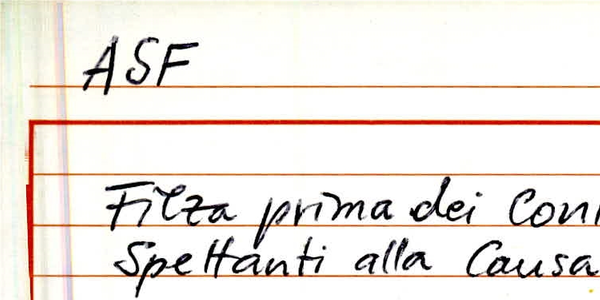 ASF
Filza prima dei
Spettanti alla Causa